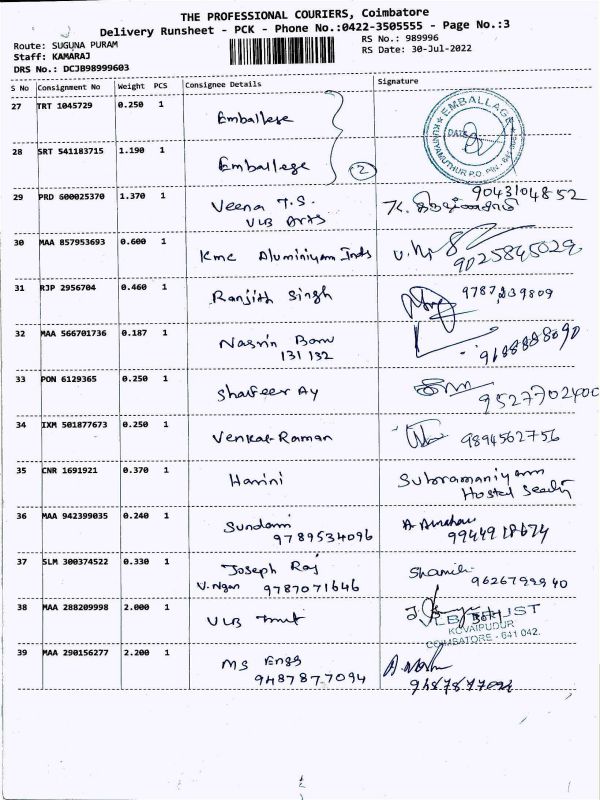 THE PROFESSIONAL COURIERS, Coimbatore
Delivery Runsheet - PCK - Phone No.:0422-3505555 - Page No.:3
Route: SUGUNA PURAM
RS No.: 989996
Staff: KAMARAJ
RS Date: 30-Jul-2022
DRS No.: DCJB98999603
S No Consignment No Weight PCS Consignee Details Signature
27 TRT 1045729 0.250 1 Emballage
EMBALLAGE
DATE
KUNIYAMUTHUR P.O. PIN - 641
28 SRT 541183715 1.190 1 Emballege 2
29 PRD 600025370 1.370 1 Veena T.S. 9043104852
VLB Arts
30 MAA 857953693 0.600 1 Kmc Aluminiyam Inds 9025845029
31 RJP 2956704 0.460 1 Ranjith Singh 9787239809
32 MAA 566701736 0.187 1 Nasrin Banu
131 132
33 PON 6129365 0.250 1 Shafeer Ay 9527702400
34 IXM 501877673 0.250 1 Venkat Raman 9894562756
35 CNR 1691921 0.370 1 Harini Subramaniyam
Hostel
36 MAA 942399035 0.240 1 Sundami
9789534096
37 SLM 300374522 0.330 1 Joseph Raj
V. Ngar 9787071646 9626799940
38 MAA 288209998 2.000 1 VLB Trust
VLB TRUST
KOVAIPUDUR
COIMBATORE - 641 042.
39 MAA 290156277 2.200 1 MS Engg
9487877094 9487877094